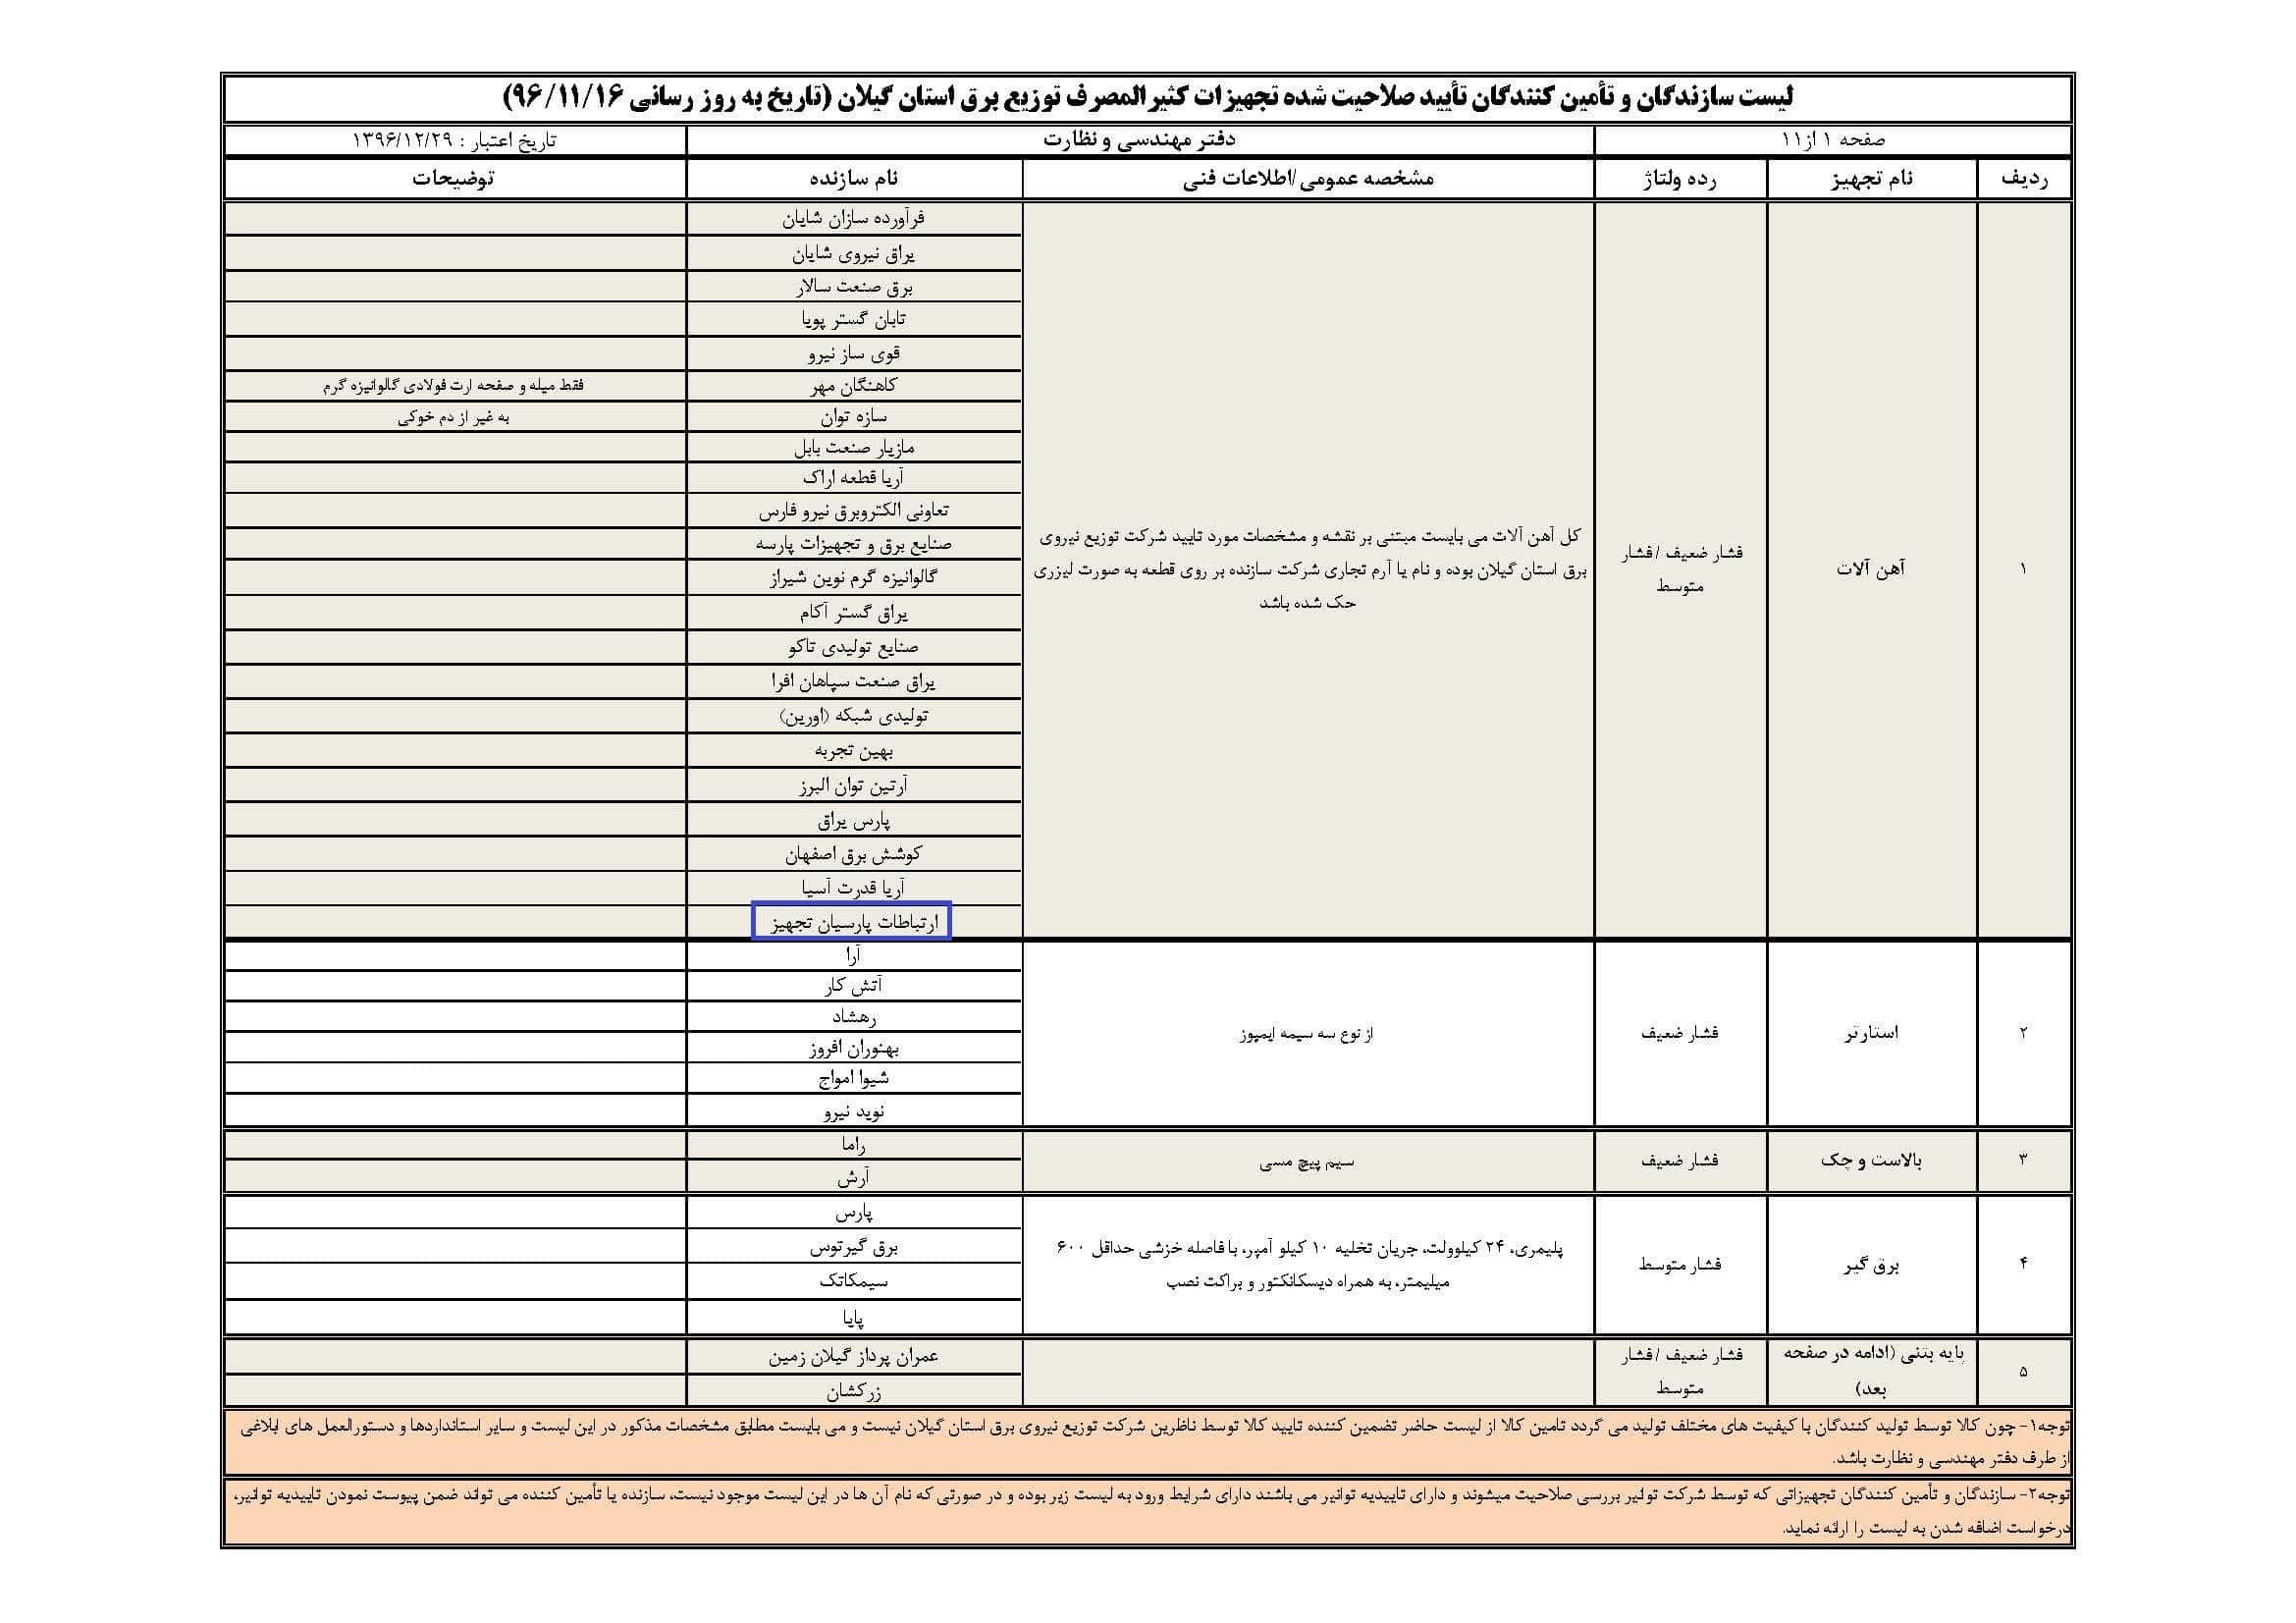 لیست سازندگان و تأمین کنندگان تأیید صلاحیت شده تجهیزات کثیر المصرف توزیع برق استان گیلان (تاریخ به روز رسانی ۹۶/۱۱/۱۶)
صفحه ۱ از ۱۱
دفتر مهندسی و نظارت
تاریخ اعتبار : ۱۳۹۶/۱۲/۲۹
ردیف
نام تجهیز
رده ولتاژ
مشخصه عمومی/اطلاعات فنی
نام سازنده
توضیحات
۱
آهن آلات
فشار ضعیف /فشار
متوسط
کل آهن آلات می بایست مبتنی بر نقشه و مشخصات مورد تایید شرکت توزیع نیروی
برق استان گیلان بوده و نام یا آرم تجاری شرکت سازنده بر روی قطعه به صورت لیزری
حک شده باشد
فرآورده سازان شایان
یراق نیروی شایان
برق صنعت سالار
تابان گستر پویا
قوی ساز نیرو
کاهنگان مهر
فقط میله و صفحه ارت فولادی گالوانیزه گرم
سازه توان
به غیر از دم خوکی
مازیار صنعت بابل
آریا قطعه اراک
تعاونی الکتروبرق نیرو فارس
صنایع برق و تجهیزات پارسه
گالوانیزه گرم نوین شیراز
یراق گستر آکام
صنایع تولیدی تاکو
یراق صنعت سپاهان افرا
تولیدی شبکه (اورین)
بهین تجربه
آرتین توان البرز
پارس یراق
کوشش برق اصفهان
آریا قدرت آسیا
ارتباطات پارسیان تجهیز
۲
استارتر
فشار ضعیف
از نوع سه سیمه ایمپوز
آرا
آتش کار
رهشاد
بهنوران افروز
شیوا امواج
نوید نیرو
۳
بالاست و چک
فشار ضعیف
سیم پیچ مسی
راما
آرش
۴
برق گیر
فشار متوسط
پلیمری، ۲۴ کیلوولت، جریان تخلیه ۱۰ کیلو آمپر، با فاصله خزشی حداقل ۶۰۰
میلیمتر، به همراه دیسکانکتور و براکت نصب
پارس
برق گیرتوس
سیمکاتک
پایا
۵
پایه بتنی (ادامه در صفحه
بعد)
فشار ضعیف /فشار
متوسط
عمران پرداز گیلان زمین
زرکشان
توجه۱- چون کالا توسط تولید کنندگان با کیفیت های مختلف تولید می گردد تامین کالا از لیست حاضر تضمین کننده تایید کالا توسط ناظرین شرکت توزیع نیروی برق استان گیلان نیست و می بایست مطابق مشخصات مذکور در این لیست و سایر استانداردها و دستورالعمل های ابلاغی
از طرف دفتر مهندسی و نظارت باشد.
توجه۲- سازندگان و تأمین کنندگان تجهیزاتی که توسط شرکت توانیر بررسی صلاحیت میشوند و دارای تاییدیه توانیر می باشند دارای شرایط ورود به لیست زیر بوده و در صورتی که نام آن ها در این لیست موجود نیست، سازنده یا تأمین کننده می تواند ضمن پیوست نمودن تاییدیه توانیر،
درخواست اضافه شدن به لیست را ارائه نماید.